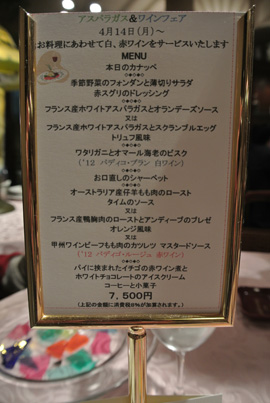 アスパラガス＆ワインフェア
4月14日(月)～
お料理にあわせて白、赤ワインをサービスいたします
MENU
本日のカナッペ
季節野菜のフォンダンと薄切りサラダ
赤スグリのドレッシング
フランス産ホワイトアスパラガスとオランデーズソース
又は
フランス産ホワイトアスパラガスとスクランブルエッグ
トリュフ風味
ワタリガニとオマール海老のビスク
('12 バディゴ・ブラン 白ワイン)
お口直しのシャーベット
オーストラリア産仔羊もも肉のロースト
タイムのソース
又は
フランス産鴨胸肉のローストとアンディーブのブレゼ
オレンジ風味
又は
甲州ワインビーフもも肉のカツレツ マスタードソース
('12 バディゴ・ルージュ 赤ワイン)
パイに挟まれたイチゴの赤ワイン煮と
ホワイトチョコレートのアイスクリーム
コーヒーと小菓子
7,500円
(上記の金額に消費税8%が加算されます。)